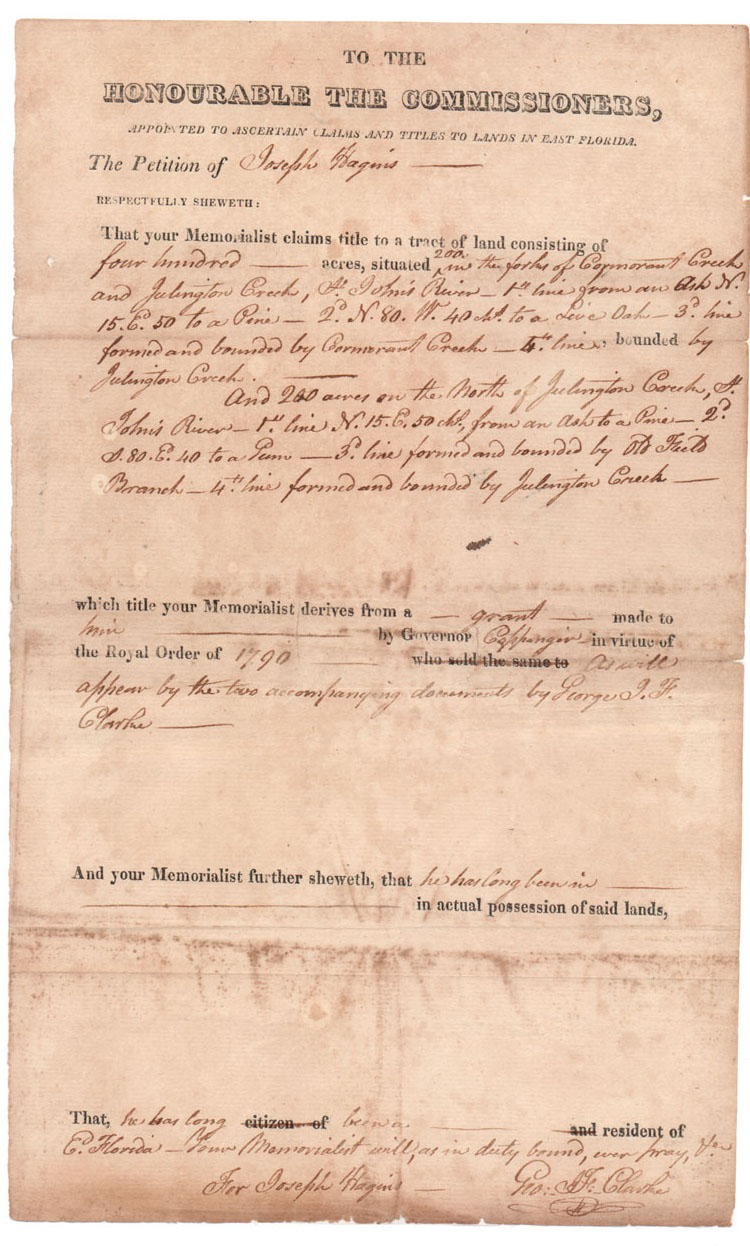 TO THE
HONOURABLE THE COMMISSIONERS,
APPOINTED TO ASCERTAIN CLAIMS AND TITLES TO LANDS IN EAST FLORIDA.
The Petition of Joseph Hagins
RESPECTFULLY SHEWETH:
That your Memorialist claims title to a tract of land consisting of
four hundred — acres, situated 200 in the forks of Cormorant Creek
and Julington Creek, St. John's River — 1st line from an Ash N.
15. Ed. 50 to a Pine — 2d. N. 80. W. 40 chs. to a Live Oak — 3d. line
formed and bounded by Cormorant Creek — 4th line, bounded by
Julington Creek. —
And 200 acres on the North of Julington Creek, St.
John's River — 1st line N. 15. E. 50 chs. from an Ash to a Pine — 2d.
S. 80. Ed. 40 to a Gum — 3d. line formed and bounded by Old Field
Branch — 4th line formed and bounded by Julington Creek —
which title your Memorialist derives from a — grant — made to
him — by Governor Coppinger in virtue of
the Royal Order of 1790 — who sold the same to As will
appear by the two accompanying documents by George J. F.
Clarke —
And your Memorialist further sheweth, that he has long been in —
— in actual possession of said lands,
That, he has long citizen of been a — and resident of
Ed. Florida — Your Memorialist will, as in duty bound, ever pray, &c.
For Joseph Hagins — Geo: J. F. Clarke